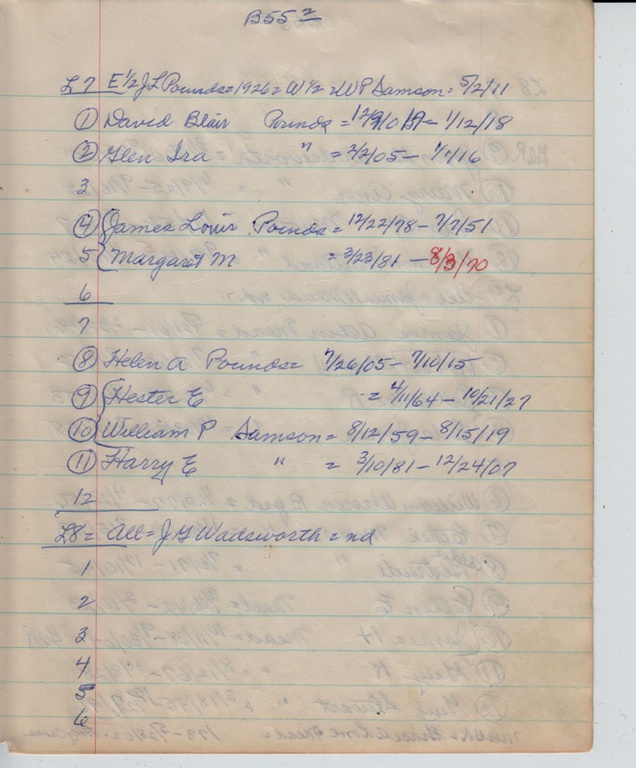 B55 2
L7 E½ J L Pounds = 1926 = W½ = W P Samson = 5/2/11
① David Blair Pounds = 1/12/18
② Glen Ira " = 2/2/05 - 1/1/16
3
④ James Louis Pounds = 12/22/78 - 7/7/51
5 Margaret M = 3/23/81 - 8/3/70
6
7
⑧ Helen A Pounds = 7/26/05 - 7/10/15
⑨ Hester E = 4/11/64 - 10/21/27
⑩ William P Samson = 8/12/59 - 8/15/19
⑪ Harry E " = 3/10/81 - 12/24/07
12
L8 = All = J G Wadsworth = nd
1
2
3
4
5
6